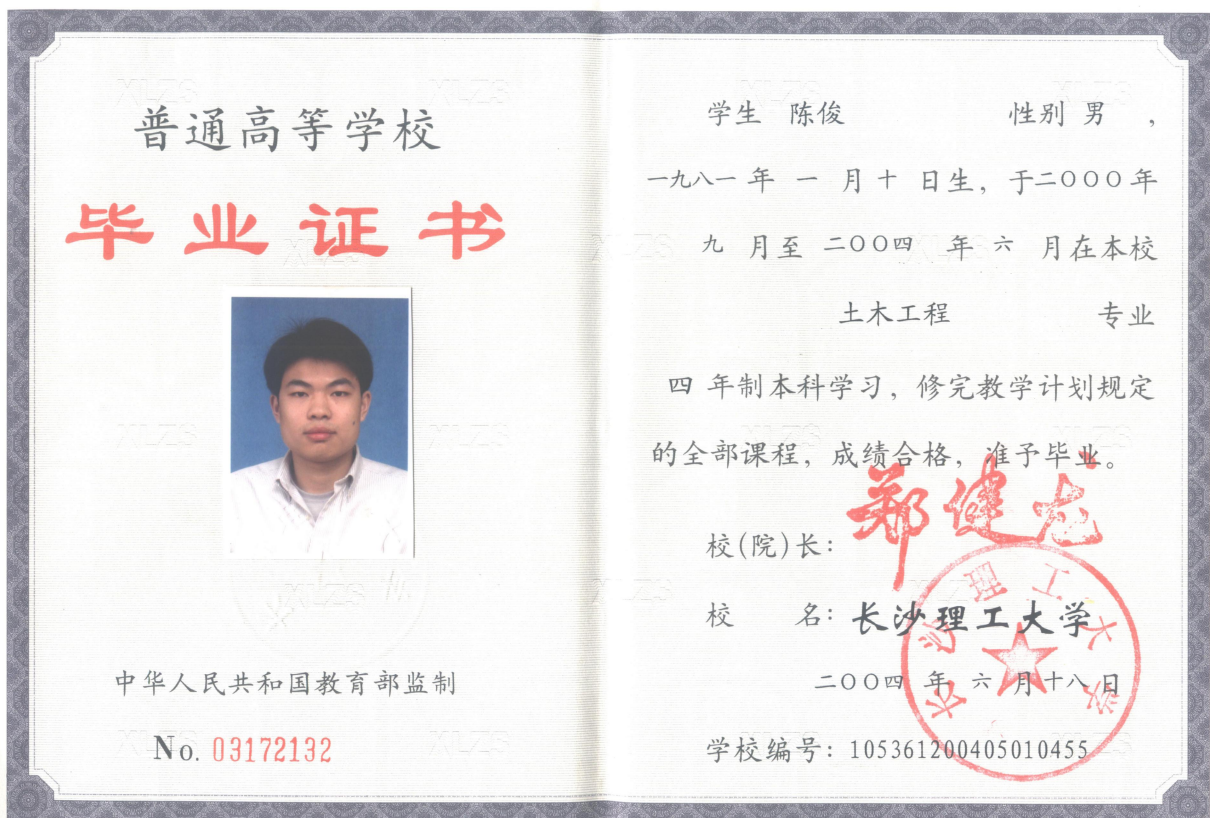 普通高等学校
毕业证书
中华人民共和国教育部监制
No. 03172132
学生 陈俊 性别 男 ，
一九八一 年 一 月 十 日生，于二〇〇〇年
九 月至 二〇〇四 年 六 月在本校
土木工程 专业
四 年制本科学习，修完教学计划规定
的全部课程，成绩合格，准予毕业。
校(院)长： 郑健龙
校 名：长沙理工大学
长沙理工大学
二〇〇四 年 六 月十八日
学校编号：105361200405010455
XLZS